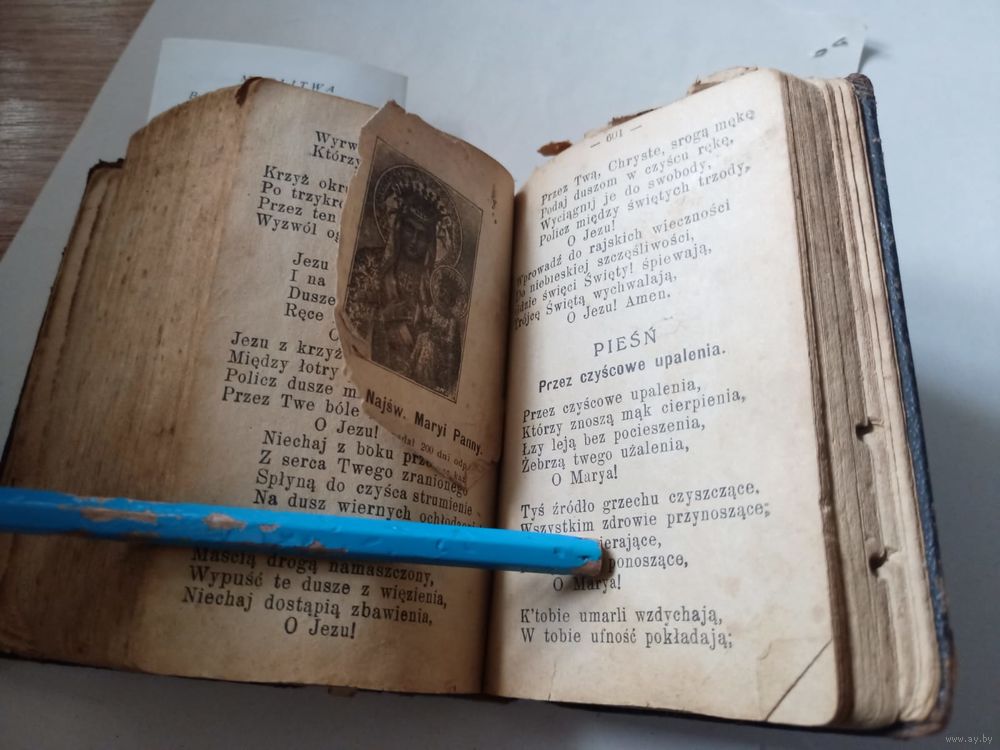 Wyrw
Którzy
Krzyż okr
Po trzykro
Przez ten
Wyzwól og
Jezu
I na
Dusze
Ręce
O
Jezu z krzyż
Między łotry
Policz dusze m
Przez Twe bóle
O Jezu!
Niechaj z boku prze
Z serca Twego zranionego
Spłyną do czyśca strumienie
Na dusz wiernych
Maścią drogą namaszczony,
Wypuść te dusze z więzienia,
Niechaj dostąpią zbawienia,
O Jezu!
Najśw. Maryi Panny.
200 dni odp.
— 601 —
Przez Twą, Chryste, srogą mękę
Podaj duszom w czyścu rękę,
Wyciągnij je do swobody,
Policz między świętych trzody,
O Jezu!
Wprowadź do rajskich wieczności
Do niebieskiej szczęśliwości,
dzie święci Święty! śpiewają,
rójcę Świętą wychwalają,
O Jezu! Amen.
PIEŚŃ
Przez czyścowe upalenia.
Przez czyścowe upalenia,
Którzy znoszą mąk cierpienia,
Łzy leją bez pocieszenia,
Żebrzą twego użalenia,
O Marya!
Tyś źródło grzechu czyszczące,
Wszystkim zdrowie przynoszące;
ierające,
ponoszące,
O Marya!
K'tobie umarli wzdychają,
W tobie ufność pokładają;
www.ay.by